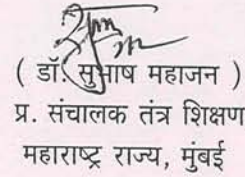 ( डॉ. सुभाष महाजन )
प्र. संचालक तंत्र शिक्षण
महाराष्ट्र राज्य, मुंबई